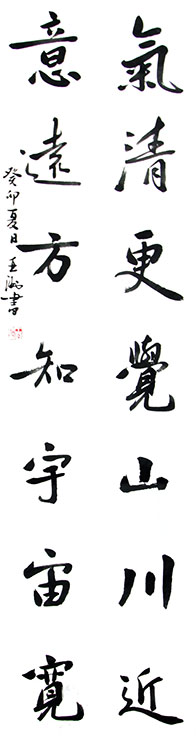 氣清更覺山川近
意遠方知宇宙寬
癸卯夏日王渊書